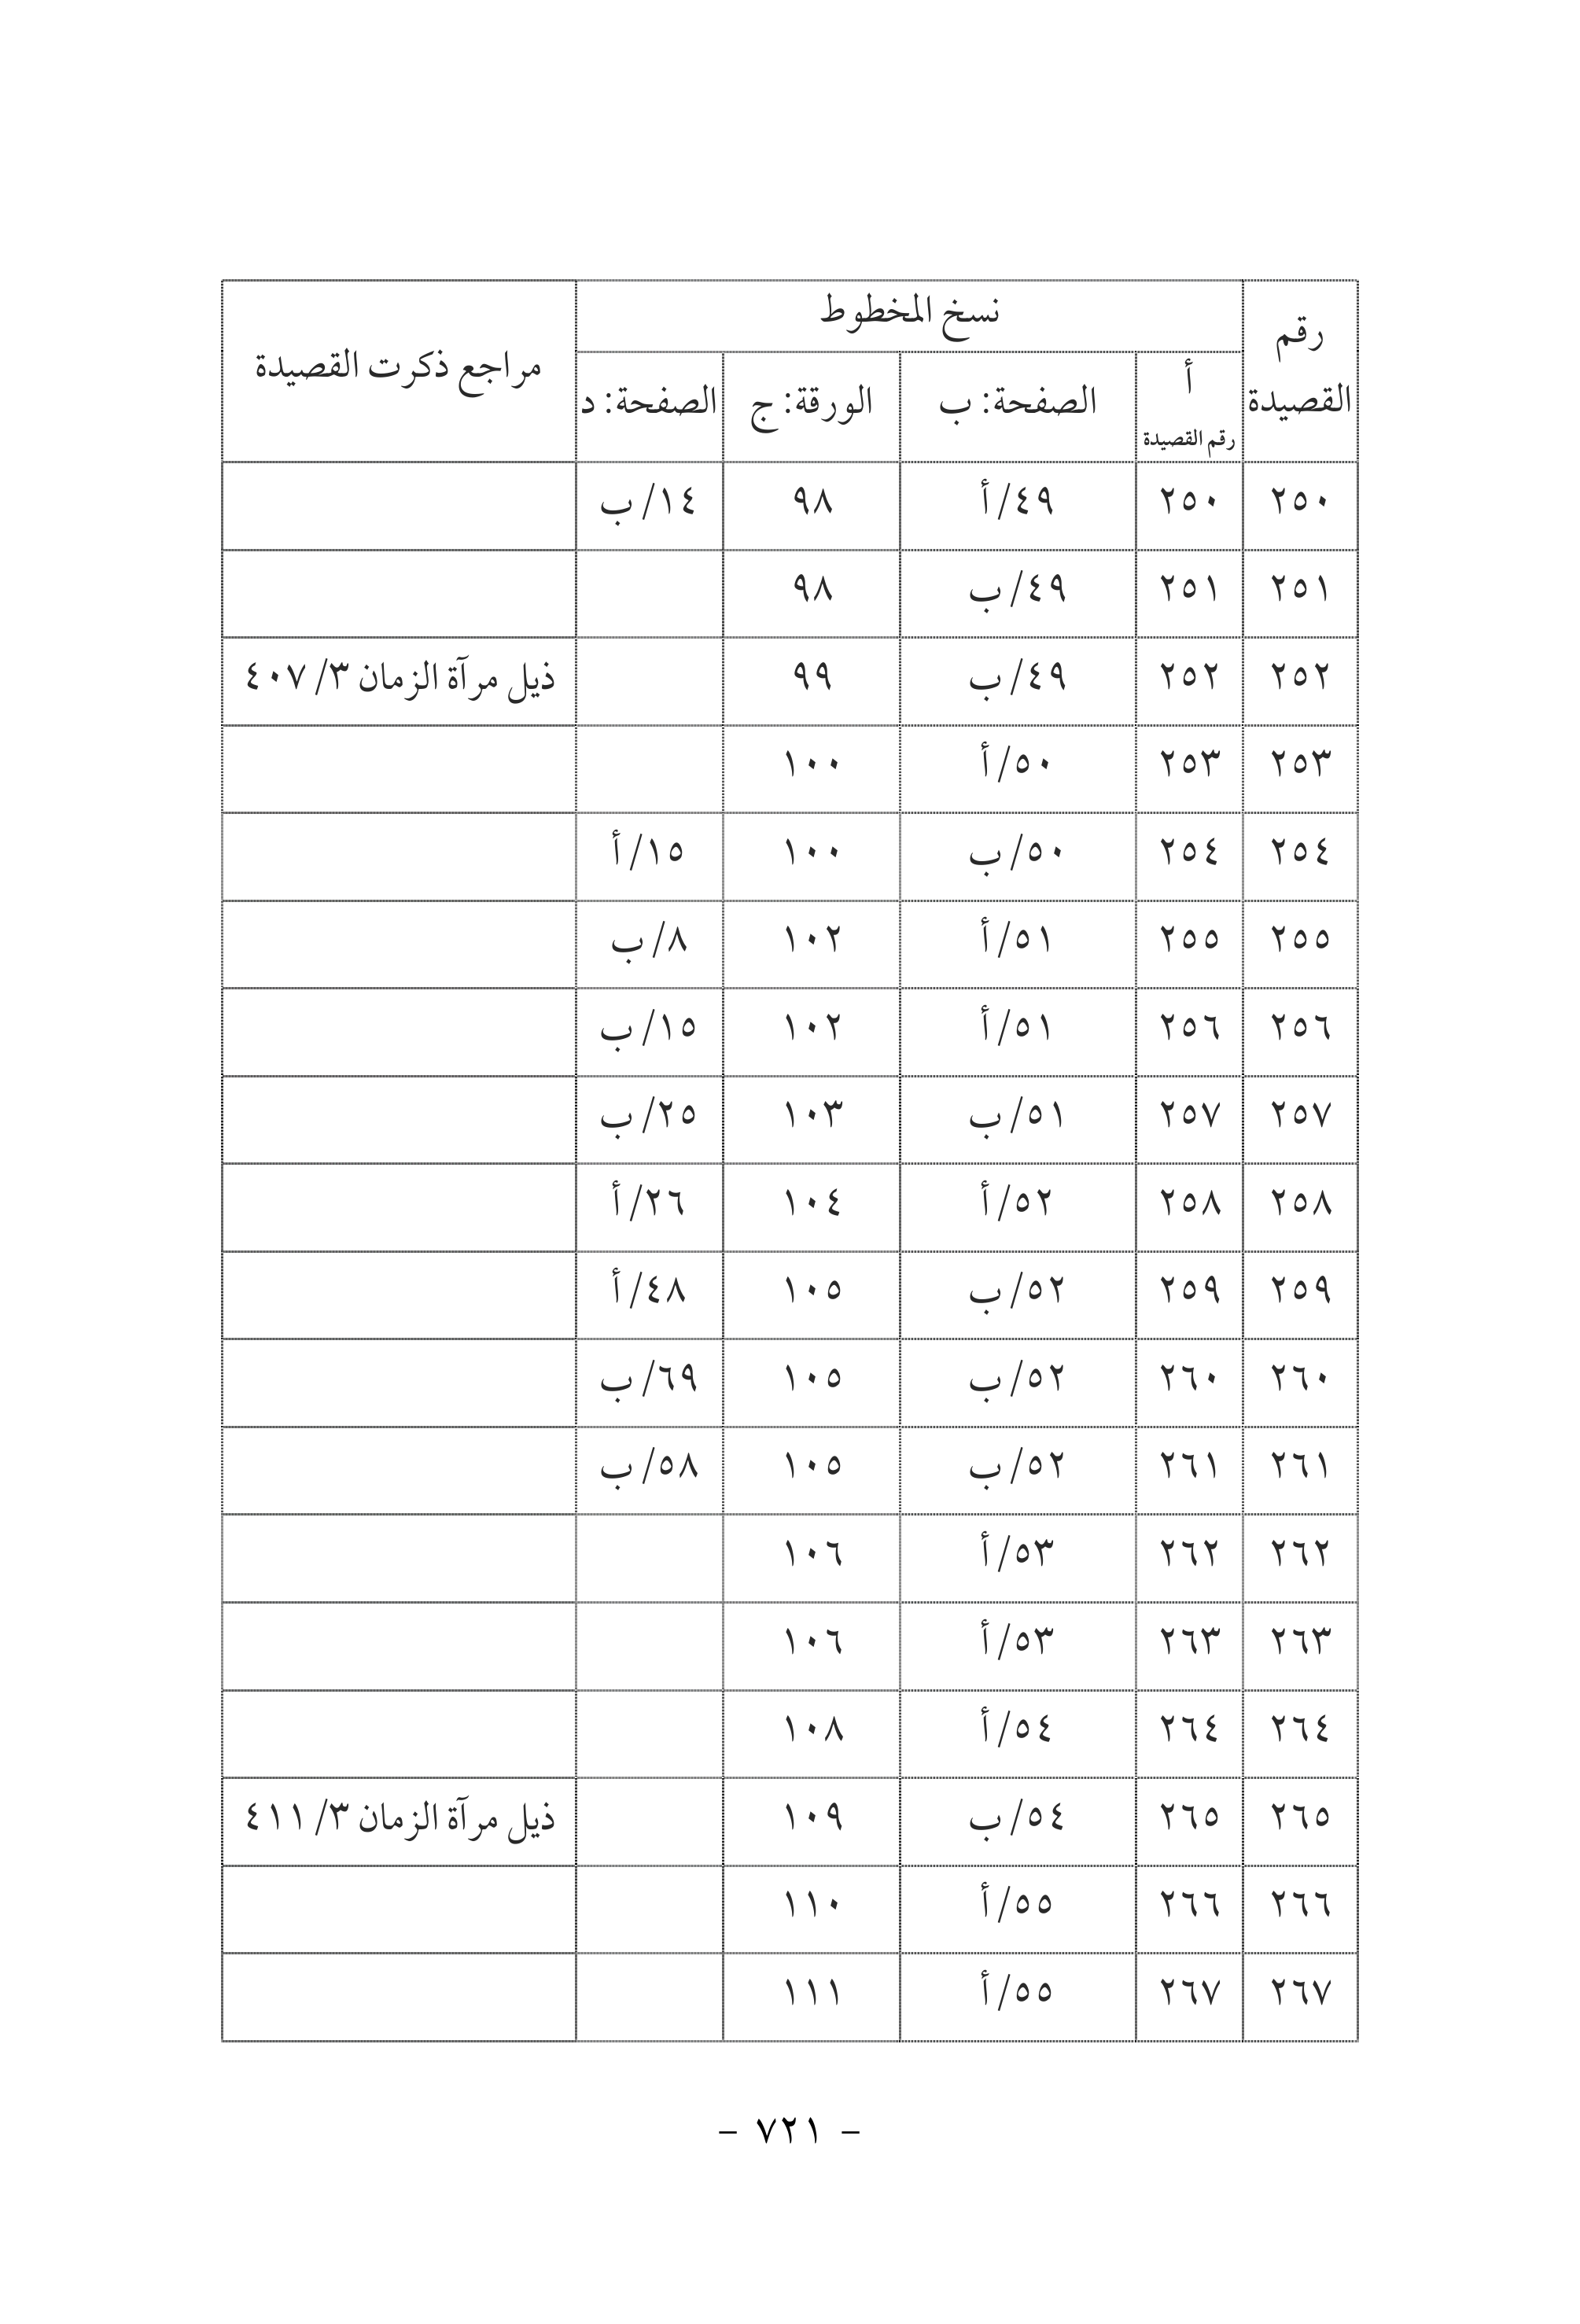 رقم القصيدة نسخ المخطوط مراجع ذكرت القصيدة
أ رقم القصيدة الصفحة: ب الورقة: ج الصفحة: د
٢٥٠ ٢٥٠ ٤٩/أ ٩٨ ١٤/ب
٢٥١ ٢٥١ ٤٩/ب ٩٨
٢٥٢ ٢٥٢ ٤٩/ب ٩٩ ذيل مرآة الزمان ٤٠٧/٣
٢٥٣ ٢٥٣ ٥٠/أ ١٠٠
٢٥٤ ٢٥٤ ٥٠/ب ١٠٠ ١٥/أ
٢٥٥ ٢٥٥ ٥١/أ ١٠٢ ٨/ب
٢٥٦ ٢٥٦ ٥١/أ ١٠٢ ١٥/ب
٢٥٧ ٢٥٧ ٥١/ب ١٠٣ ٢٥/ب
٢٥٨ ٢٥٨ ٥٢/أ ١٠٤ ٢٦/أ
٢٥٩ ٢٥٩ ٥٢/ب ١٠٥ ٤٨/أ
٢٦٠ ٢٦٠ ٥٢/ب ١٠٥ ٦٩/ب
٢٦١ ٢٦١ ٥٢/ب ١٠٥ ٥٨/ب
٢٦٢ ٢٦٢ ٥٣/أ ١٠٦
٢٦٣ ٢٦٣ ٥٣/أ ١٠٦
٢٦٤ ٢٦٤ ٥٤/أ ١٠٨
٢٦٥ ٢٦٥ ٥٤/ب ١٠٩ ذيل مرآة الزمان ٤١١/٣
٢٦٦ ٢٦٦ ٥٥/أ ١١٠
٢٦٧ ٢٦٧ ٥٥/أ ١١١
- ٧٢١ -